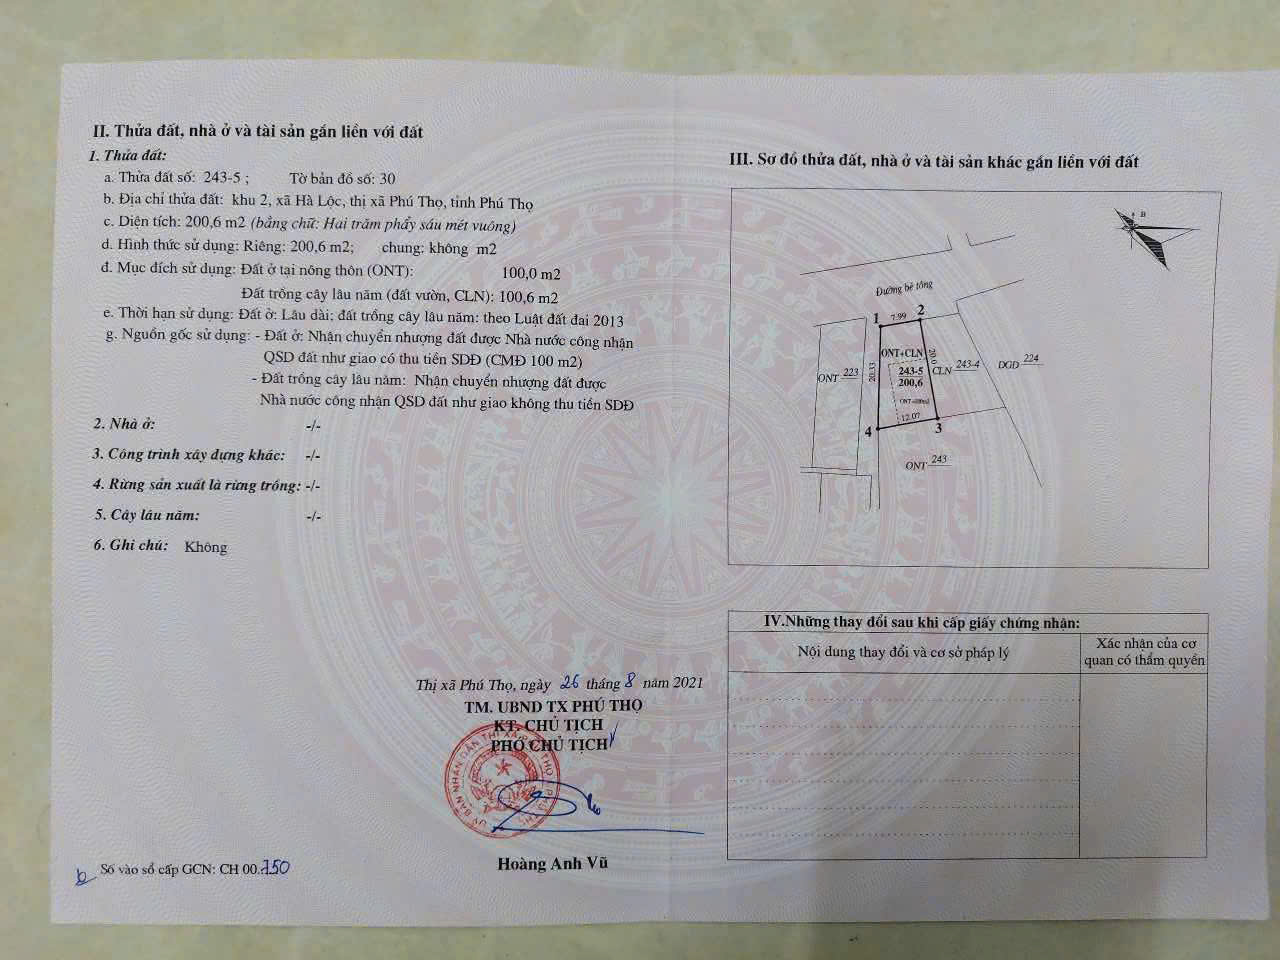 II. Thửa đất, nhà ở và tài sản gắn liền với đất
1. Thửa đất:
a. Thửa đất số: 243-5 ; Tờ bản đồ số: 30
b. Địa chỉ thửa đất: khu 2, xã Hà Lộc, thị xã Phú Thọ, tỉnh Phú Thọ
c. Diện tích: 200,6 m2 (bằng chữ: Hai trăm phẩy sáu mét vuông)
d. Hình thức sử dụng: Riêng: 200,6 m2; chung: không m2
đ. Mục đích sử dụng: Đất ở tại nông thôn (ONT): 100,0 m2
Đất trồng cây lâu năm (đất vườn, CLN): 100,6 m2
e. Thời hạn sử dụng: Đất ở: Lâu dài; đất trồng cây lâu năm: theo Luật đất đai 2013
g. Nguồn gốc sử dụng: - Đất ở: Nhận chuyển nhượng đất được Nhà nước công nhận
QSD đất như giao có thu tiền SDĐ (CMĐ 100 m2)
- Đất trồng cây lâu năm: Nhận chuyển nhượng đất được
Nhà nước công nhận QSD đất như giao không thu tiền SDĐ
2. Nhà ở: -/-
3. Công trình xây dựng khác: -/-
4. Rừng sản xuất là rừng trồng: -/-
5. Cây lâu năm: -/-
6. Ghi chú: Không
Thị xã Phú Thọ, ngày 26 tháng 8 năm 2021
TM. UBND TX PHÚ THỌ
KT. CHỦ TỊCH
PHÓ CHỦ TỊCH
Hoàng Anh Vũ
Số vào sổ cấp GCN: CH 00.750
III. Sơ đồ thửa đất, nhà ở và tài sản khác gắn liền với đất
B
Đường bê tông
1 7.99 2
ONT+CLN
ONT 223
20.33
243-5
200,6
20.0
CLN 243-4
DGD 224
12.07
4 3
ONT 243
IV.Những thay đổi sau khi cấp giấy chứng nhận:
Nội dung thay đổi và cơ sở pháp lý
Xác nhận của cơ
quan có thẩm quyền